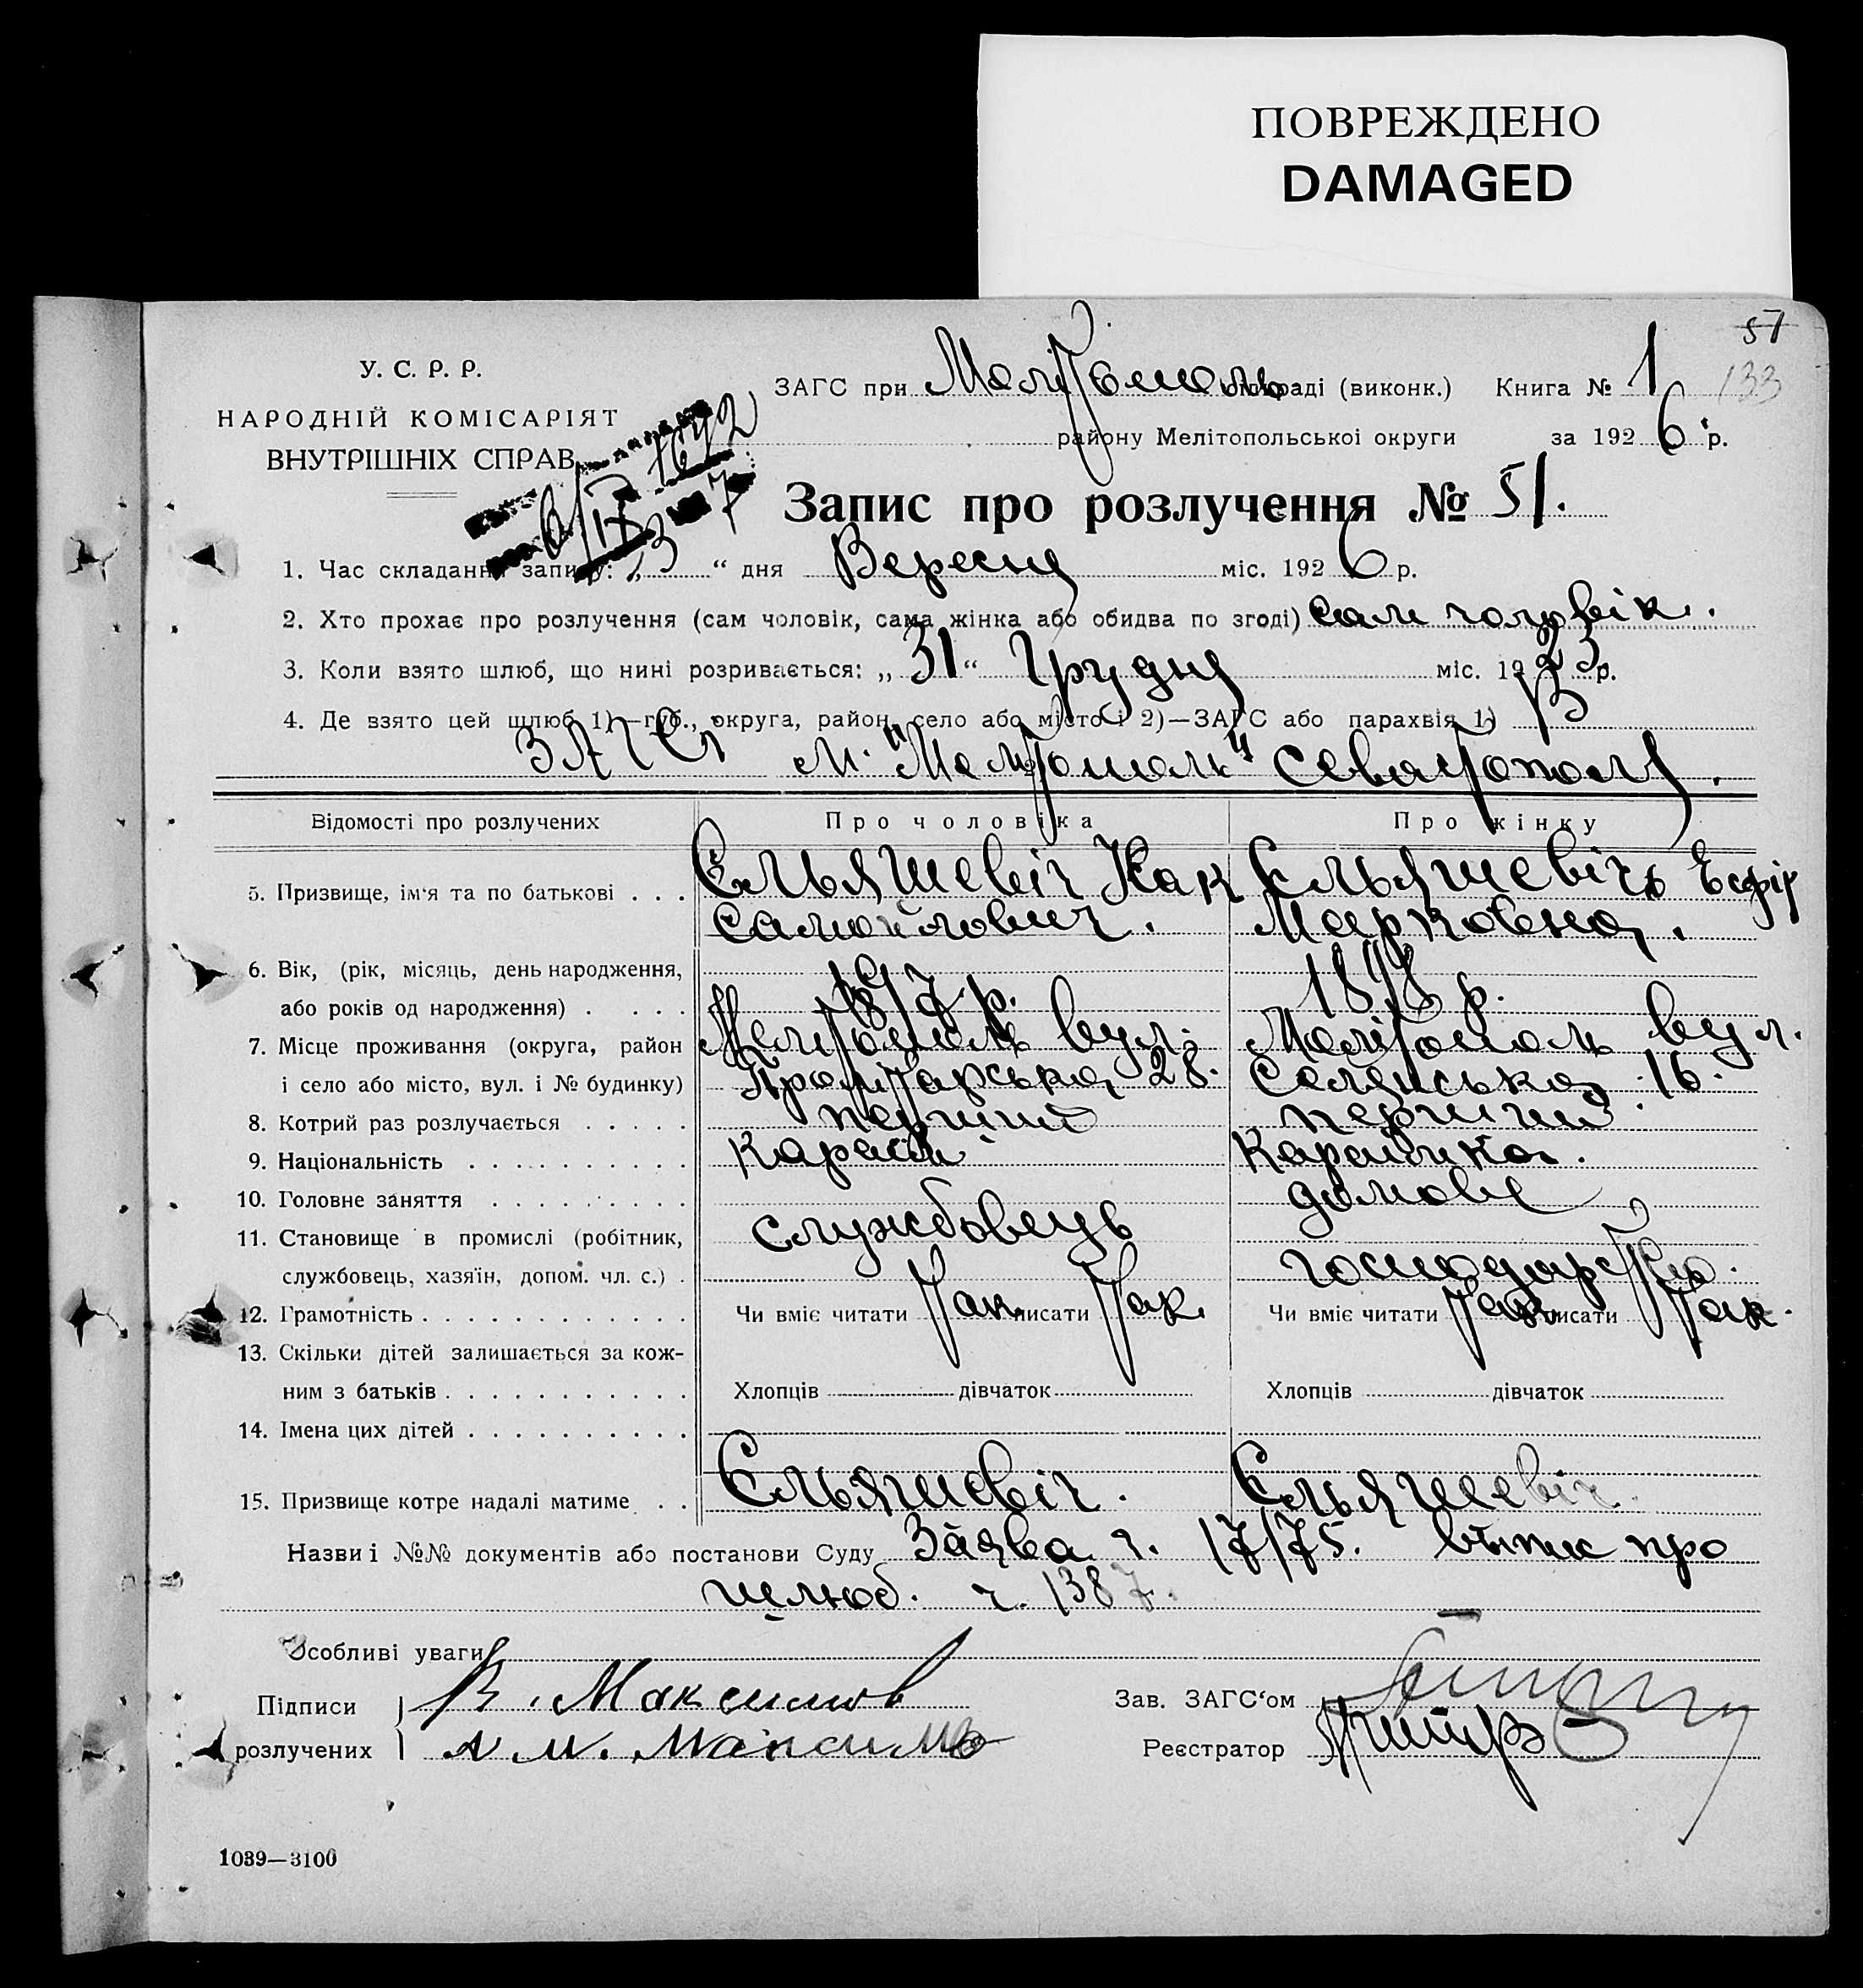 ПОВРЕЖДЕНО
DAMAGED
57
133
У. С. Р. Р.
НАРОДНІЙ КОМІСАРІЯТ
ВНУТРІШНІХ СПРАВ
ЗАГС при Мелітополь міськраді (виконк.) Книга № 1
району Мелітопольської округи за 1926 р.
Запис про розлучення № 51.
1. Час складання запису: „3“ дня Вересня міс. 1926 р.
2. Хто прохає про розлучення (сам чоловік, сама жінка або обидва по згоді) сам чоловік.
3. Коли взято шлюб, що нині розривається: „31“ Грудня міс. 1923 р.
4. Де взято цей шлюб 1)—губ., округа, район, село або місто і 2)—ЗАГС або парахвія 1) В
ЗАГСі м. "Мелітополь" Севастополя.
Відомості про розлучених
Про чоловіка
Про жінку
5. Призвище, ім‘я та по батькові . . . Єльяшевіч Как Єльяшевічь Есфір
Самойлович. Марковна.
6. Вік, (рік, місяць, день народження,
або років од народження) . . . . 1897 р. 1898 р.
7. Місце проживання (округа, район Мелітополь вул. Мелітополь вул.
і село або місто, вул. і № будинку) Пролітарська 28. Селянська 16.
8. Котрий раз розлучається . . . . . перший перший.
9. Національність . . . . . . . . . . Караїм Караїмка.
10. Головне заняття . . . . . . . . . домове
11. Становище в промислі (робітник, службовець
службовець, хазяїн, допом. чл. с.) . господарство.
12. Грамотність . . . . . . . . . . . . Чи вміє читати так писати так Чи вміє читати так писати так.
13. Скільки дітей залишається за кож-
ним з батьків . . . . . . . . . . . Хлопців дівчаток Хлопців дівчаток
14. Імена цих дітей . . . . . . . . . .
15. Призвище котре надалі матиме . . Єльяшевіч. Єльяшевіч.
Назви і №№ документів або постанови Суду Заява ч. 17175. випис про
шлюб. ч. 1387.
Особливі уваги
Підписи В. Максимов Зав. ЗАГС‘ом
розлучених Реєстратор
1039—3100